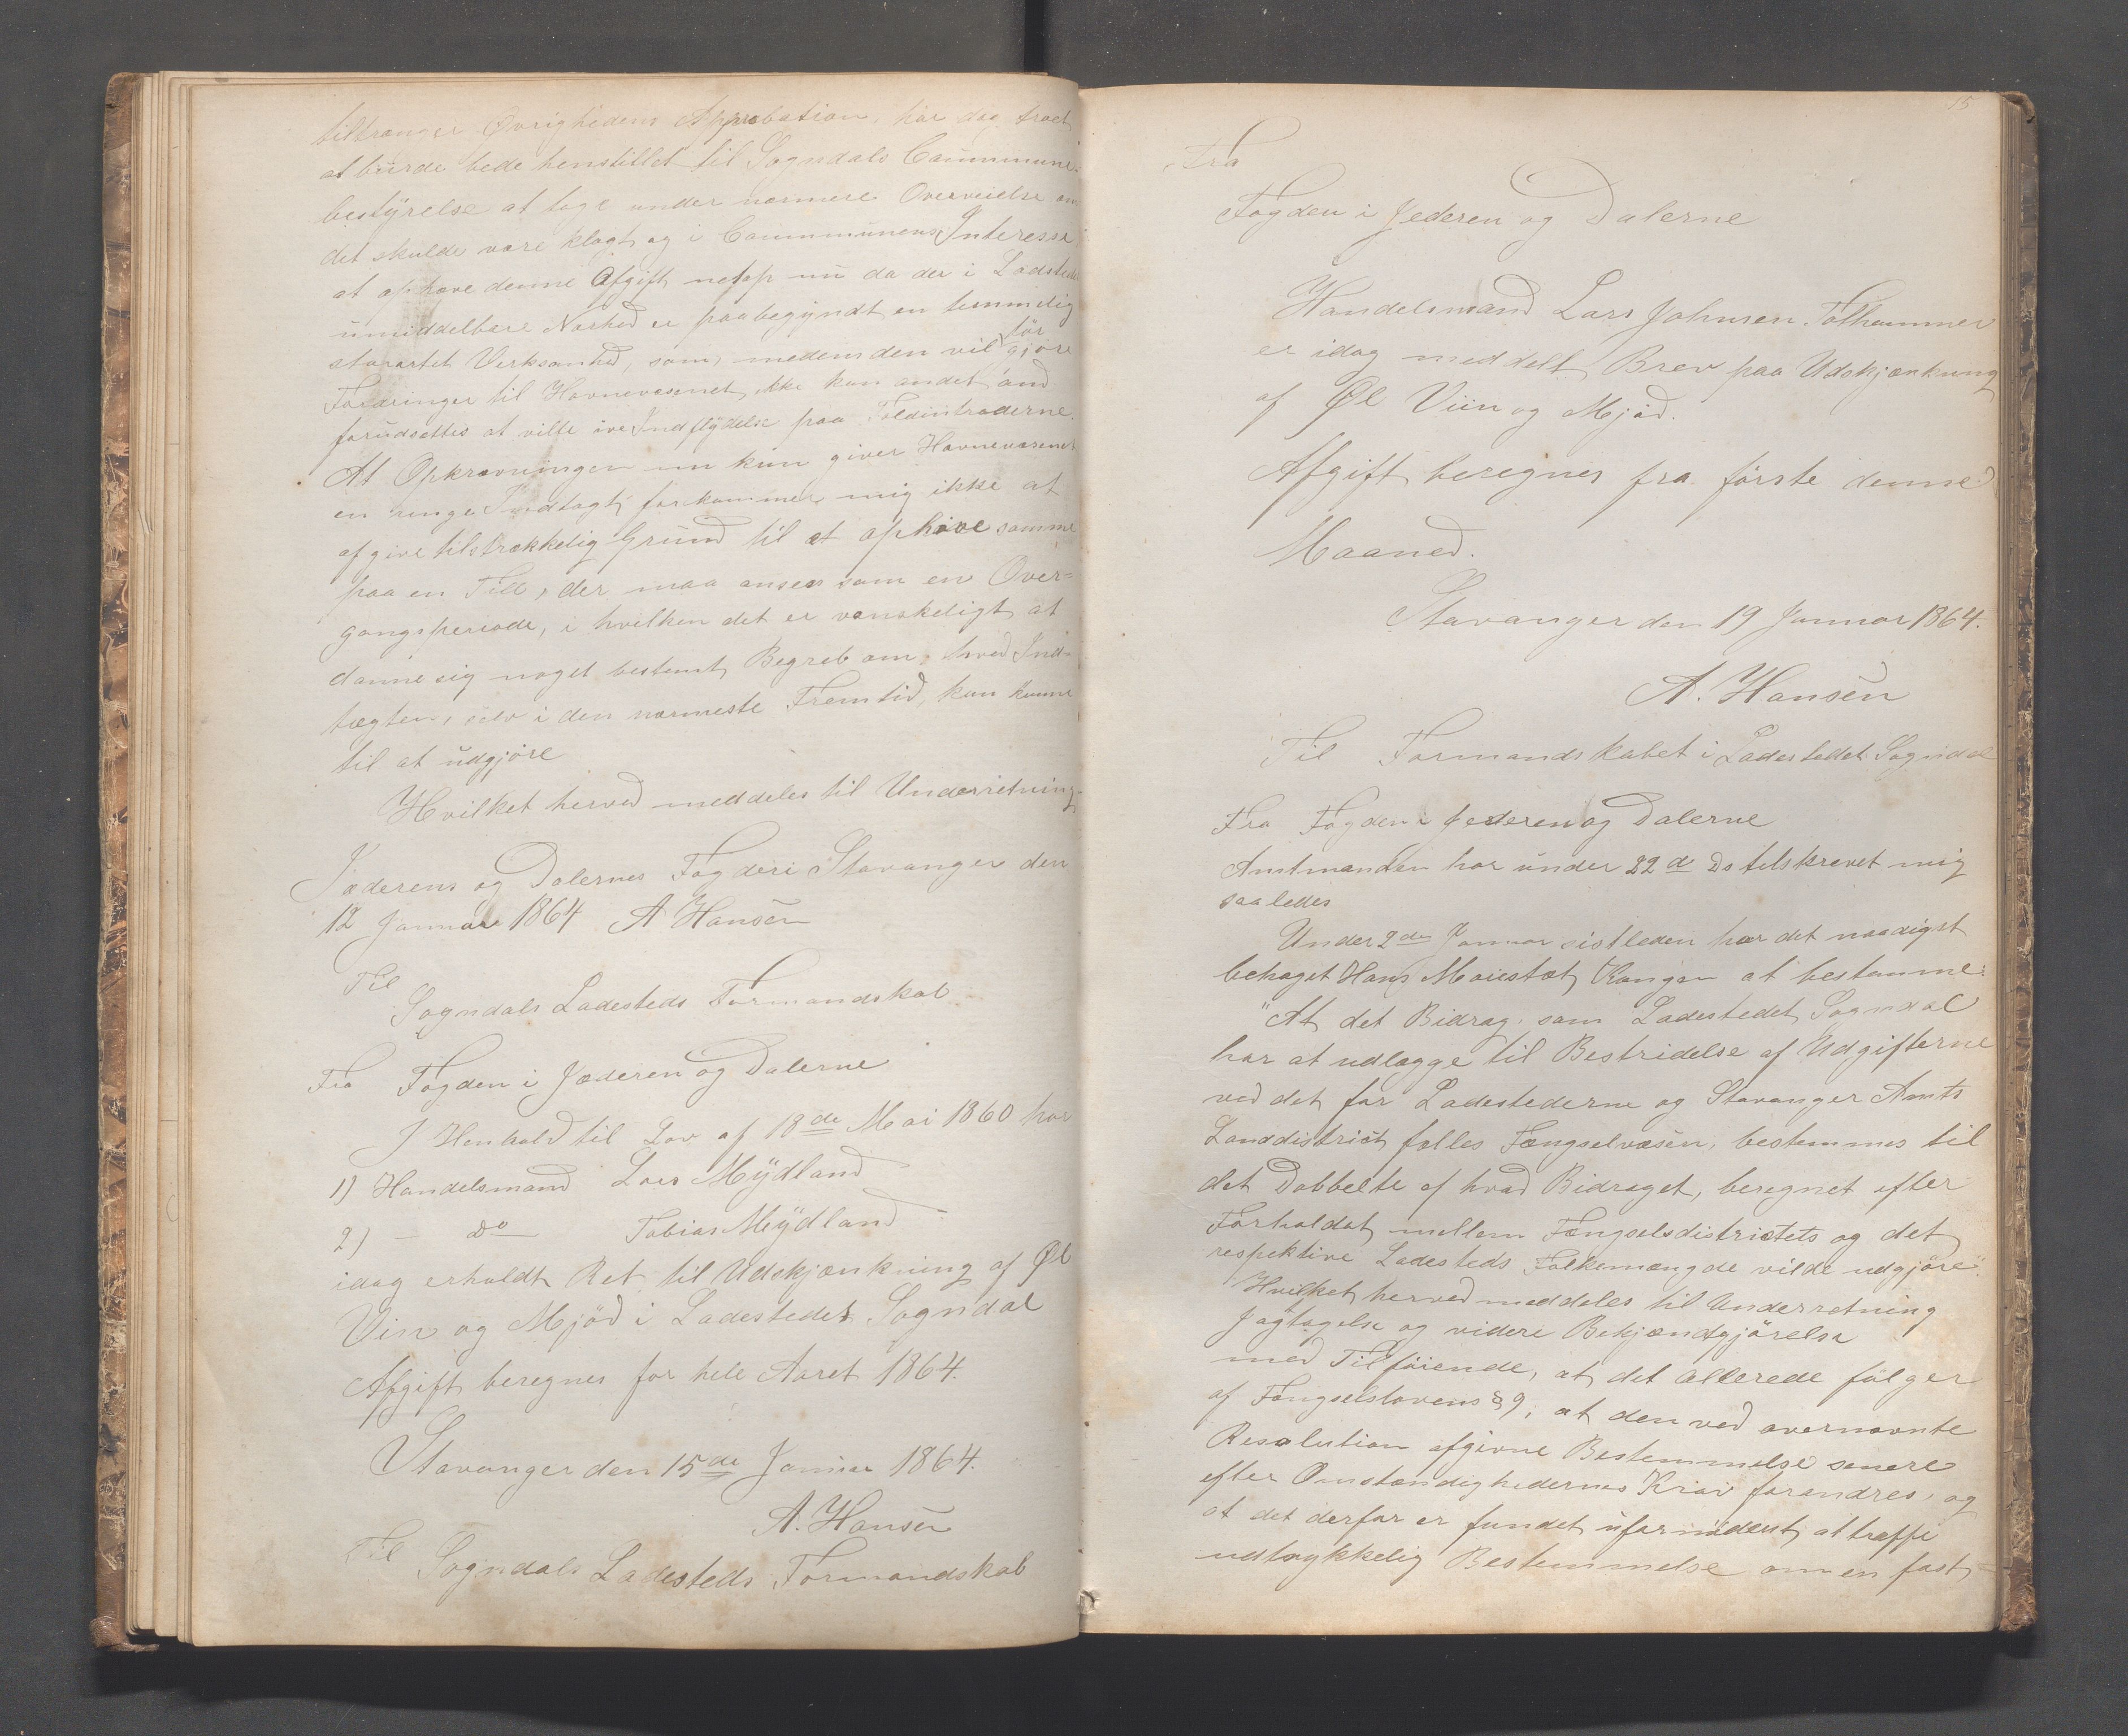 tiltrænger Øvrighedens Approbation, har dog troet
at burde bede henstillet til Sogndals Communne-
bestyrelse at tage under nærmere Overveielse om
det skulde være klogt og i Communnens Interesse
at ophæve denne Afgift netop nu da der i Ladstedets
umiddelbare Nærhed er paabegyndt en temmelig
storartet Virksomhed, som, medens den vil før gjøre
Fordringer til Havnevæsenet ikke kan andet end
forudsættes at ville øve Indflydelse paa Toldintraderne.
At Opkrævningen nu kun giver Havnevæsenet
en ringe Indtægt, forkommer mig ikke at
afgive tilstrækkelig Grund til at ophæve samme
paa en Tid, der maa ansees som en Over-
gangsperiode, i hvilken det er vanskeligt at
danne sig noget bestemt Begreb om, hvad Ind-
tægten, selv i den nærmeste Fremtid, kan komme
til at udgjøre
Hvilket herved meddeles til Underretning.
Jæderens og Dalernes Fogderi Stavanger den
12 Januar 1864 A Hansen
Til
Sogndals Ladesteds Formandskab
Fra Fogden i Jæderen og Dalerne
I Henhold til Lov af 18de Mai 1860 har
1) Handelsmand Lars Mydland
2) — do — Tobias Mydland
idag erholdt Ret til Udskjænkning af Øl
Vin og Mjød i Ladestedet Sogndal
Afgift beregnes for hele Aaret 1864.
Stavanger den 15de Januar 1864.
A. Hansen
Til Sogndals Ladesteds Formandskab
15
Fra
Fogden i Jederen og Dalerne
Handelsmand Lars Johnsen
er idag meddelt Brev paa Udskjænkning
af Øl Viin og Mjød.
Afgift beregnes fra første denne
Maaned.
Stavanger den 19 Januar 1864.
A. Hansen
Til Formandskabet i Ladestedet Sogndal
Fra Fogden i Jederen og Dalerne
Amtmanden har under 22d Ds tilskrevet mig
saaledes
Under 2den Januar sistleden har det naadigst
behaget Hans Majestæt Kongen at bestemme:
"At det Bidrag, som Ladestedet Sogndal
har at udlægge til Bestridelse af Udgifterne
ved det for Ladestederne og Stavanger Amts
Landdistrict fælles Fængselvæsen, bestemmes til
det Dobbelte af hvad Bidraget, beregnet efter
Forholdet mellem Fængselsdistrictets og det
respektive Ladesteds Folkemængde vilde udgjøre".
Hvilket herved meddeles til Underretning
Jagtagelse og videre Bekjændtgjørelse
med Tilføiende, at det allerede følger
af Fængselslovens § 9, at den ved overnævnte
Resolution afgivne Bestemmelse senere
efter Omstændighedernes Krav forandres, og
at det derfor er fundet ufornødent at træffe
udtrykkelig Bestemmelse om en fast